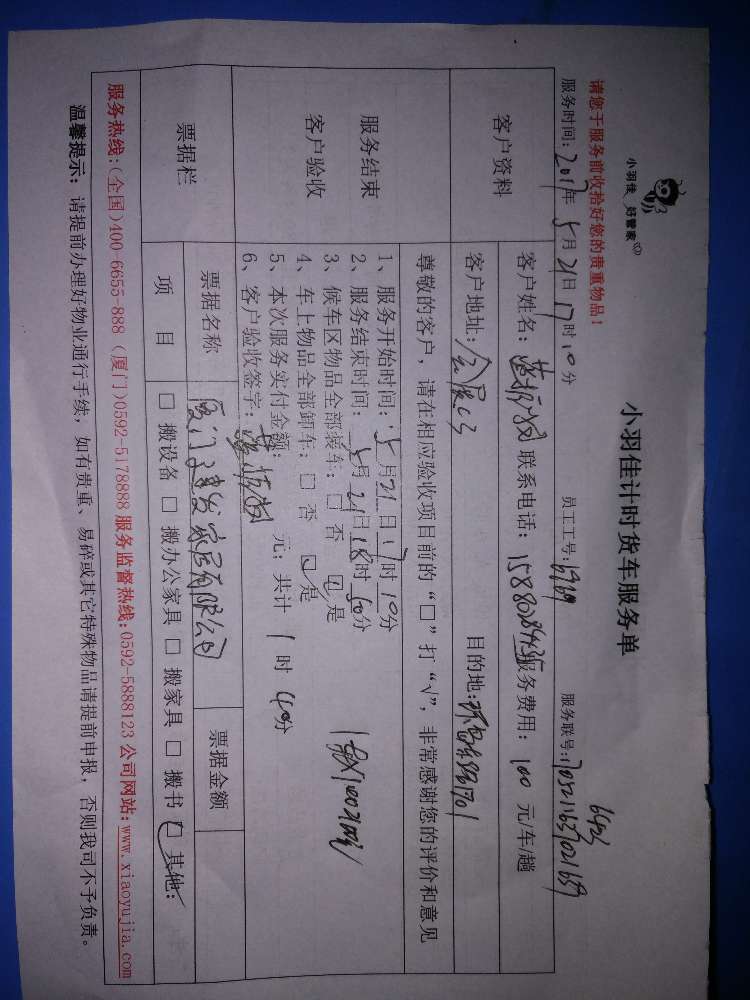 小羽佳 好管家
小羽佳计时货车服务单
请您于服务前收拾好您的贵重物品！
服务时间：2017年5月21日17时10分 员工工号： 服务联号：
客户资料
客户姓名： 联系电话： 服务费用：100元/车/趟
客户地址： 目的地：
尊敬的客户，请在相应验收项目前的“□”打“√”，非常感谢您的评价和意见
服务结束
客户验收
1、服务开始时间：5月21日17时10分
2、服务结束时间：5月21日18时50分
3、候车区物品全部装车：□ 否 □ 是
4、车上物品全部卸车：□ 否 □ 是
5、本次服务实付金额： 元；共计1时40分
6、客户验收签字：
票据栏
票据名称 票据金额
项 目 □ 搬设备 □ 搬办公家具 □ 搬家具 □ 搬书 □ 其他：
服务热线：(全国)400-6655-888 (厦门)0592-5178888 服务监督热线：0592-5888123 公司网站：www.xiaoyujia.com
温馨提示：请提前办理好物业通行手续，如有贵重、易碎或其它特殊物品请提前申报，否则我司不予负责。